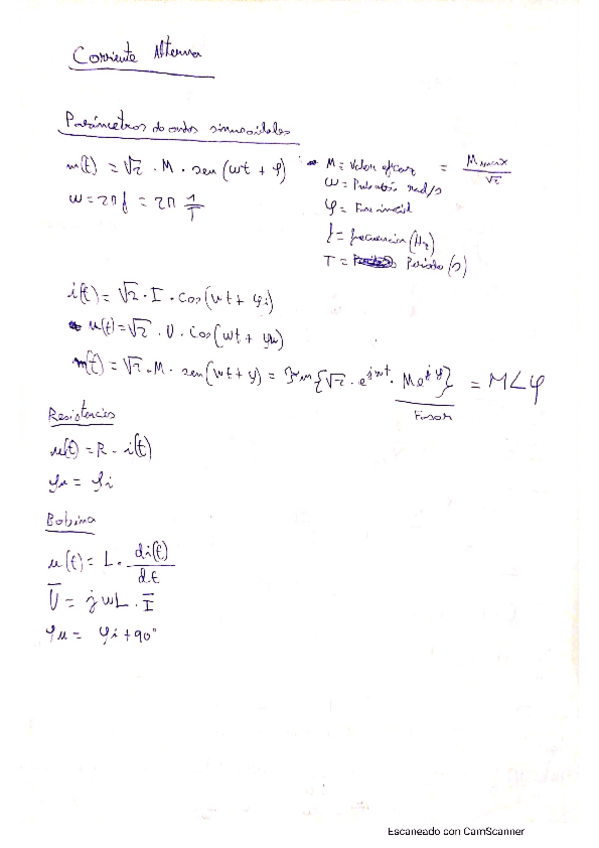 Corriente Alterna
Parámetros de ondas sinusoidales
m(t) = √2 · M · sen(wt + φ)
M = Valor eficaz = Mmax/√2
w = 2πf = 2π 1/T
w = Pulsación rad/s
φ = Fase inicial
f = frecuencia (Hz)
T = Periodo (s)
i(t) = √2 · I · cos(wt + φi)
u(t) = √2 · U · cos(wt + φu)
m(t) = √2 · M · sen(wt + φ) = Im{√2 · e^jwt · Me^jφ} = M∠φ
Fasor
Resistencias
u(t) = R · i(t)
φu = φi
Bobina
u(t) = L · di(t)/dt
U̅ = jwL · I̅
φu = φi + 90°
Escaneado con CamScanner